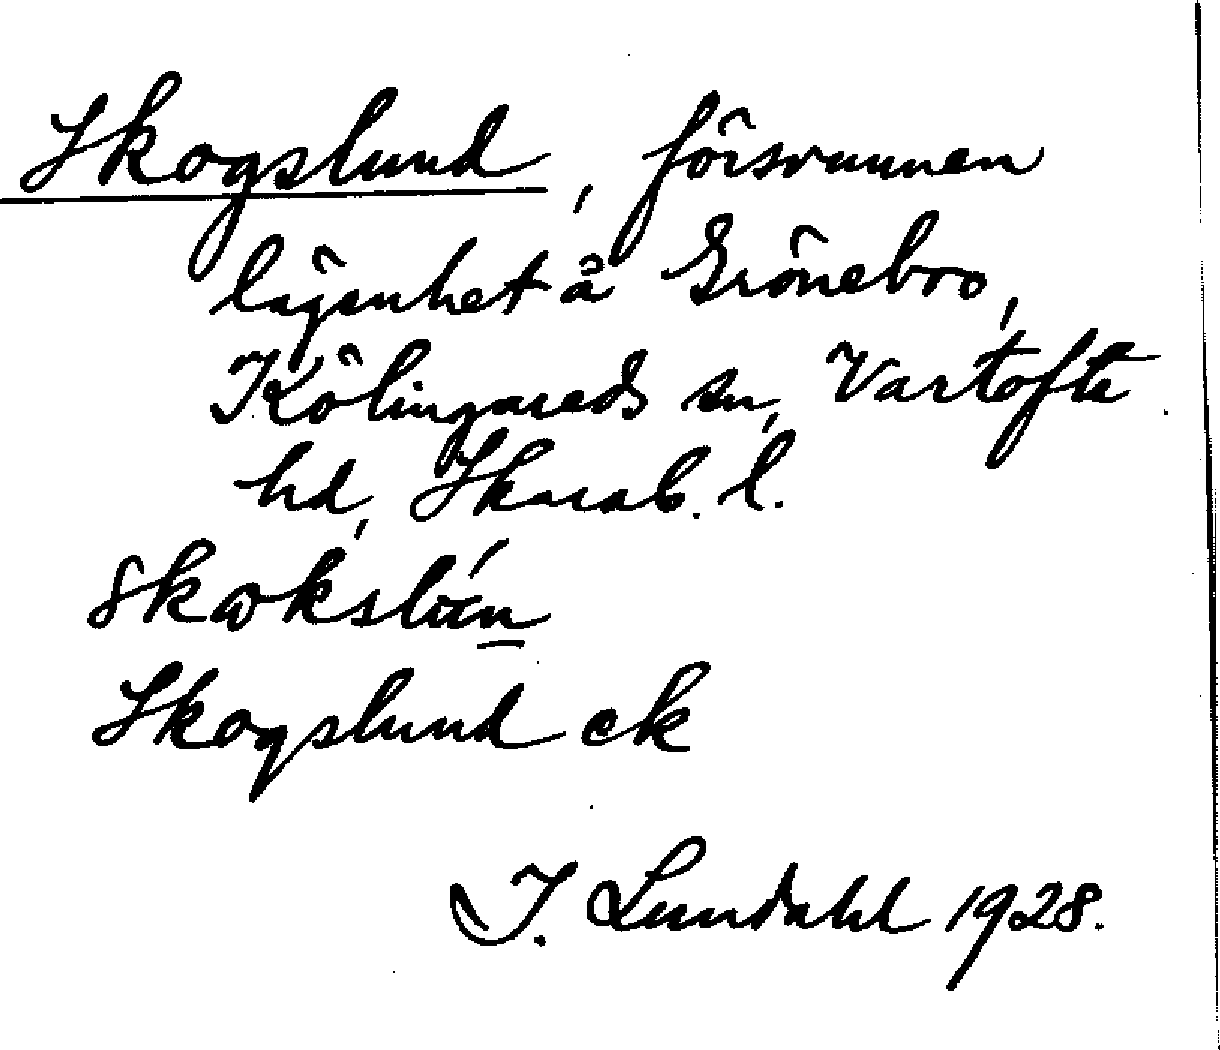 Skogslund, försvunnen
lägenhet å Gröneboo,
Kölingareds sn, Vartofta
hd, Skarab. l.
Skogslund ek
I. Lundahl 1928.